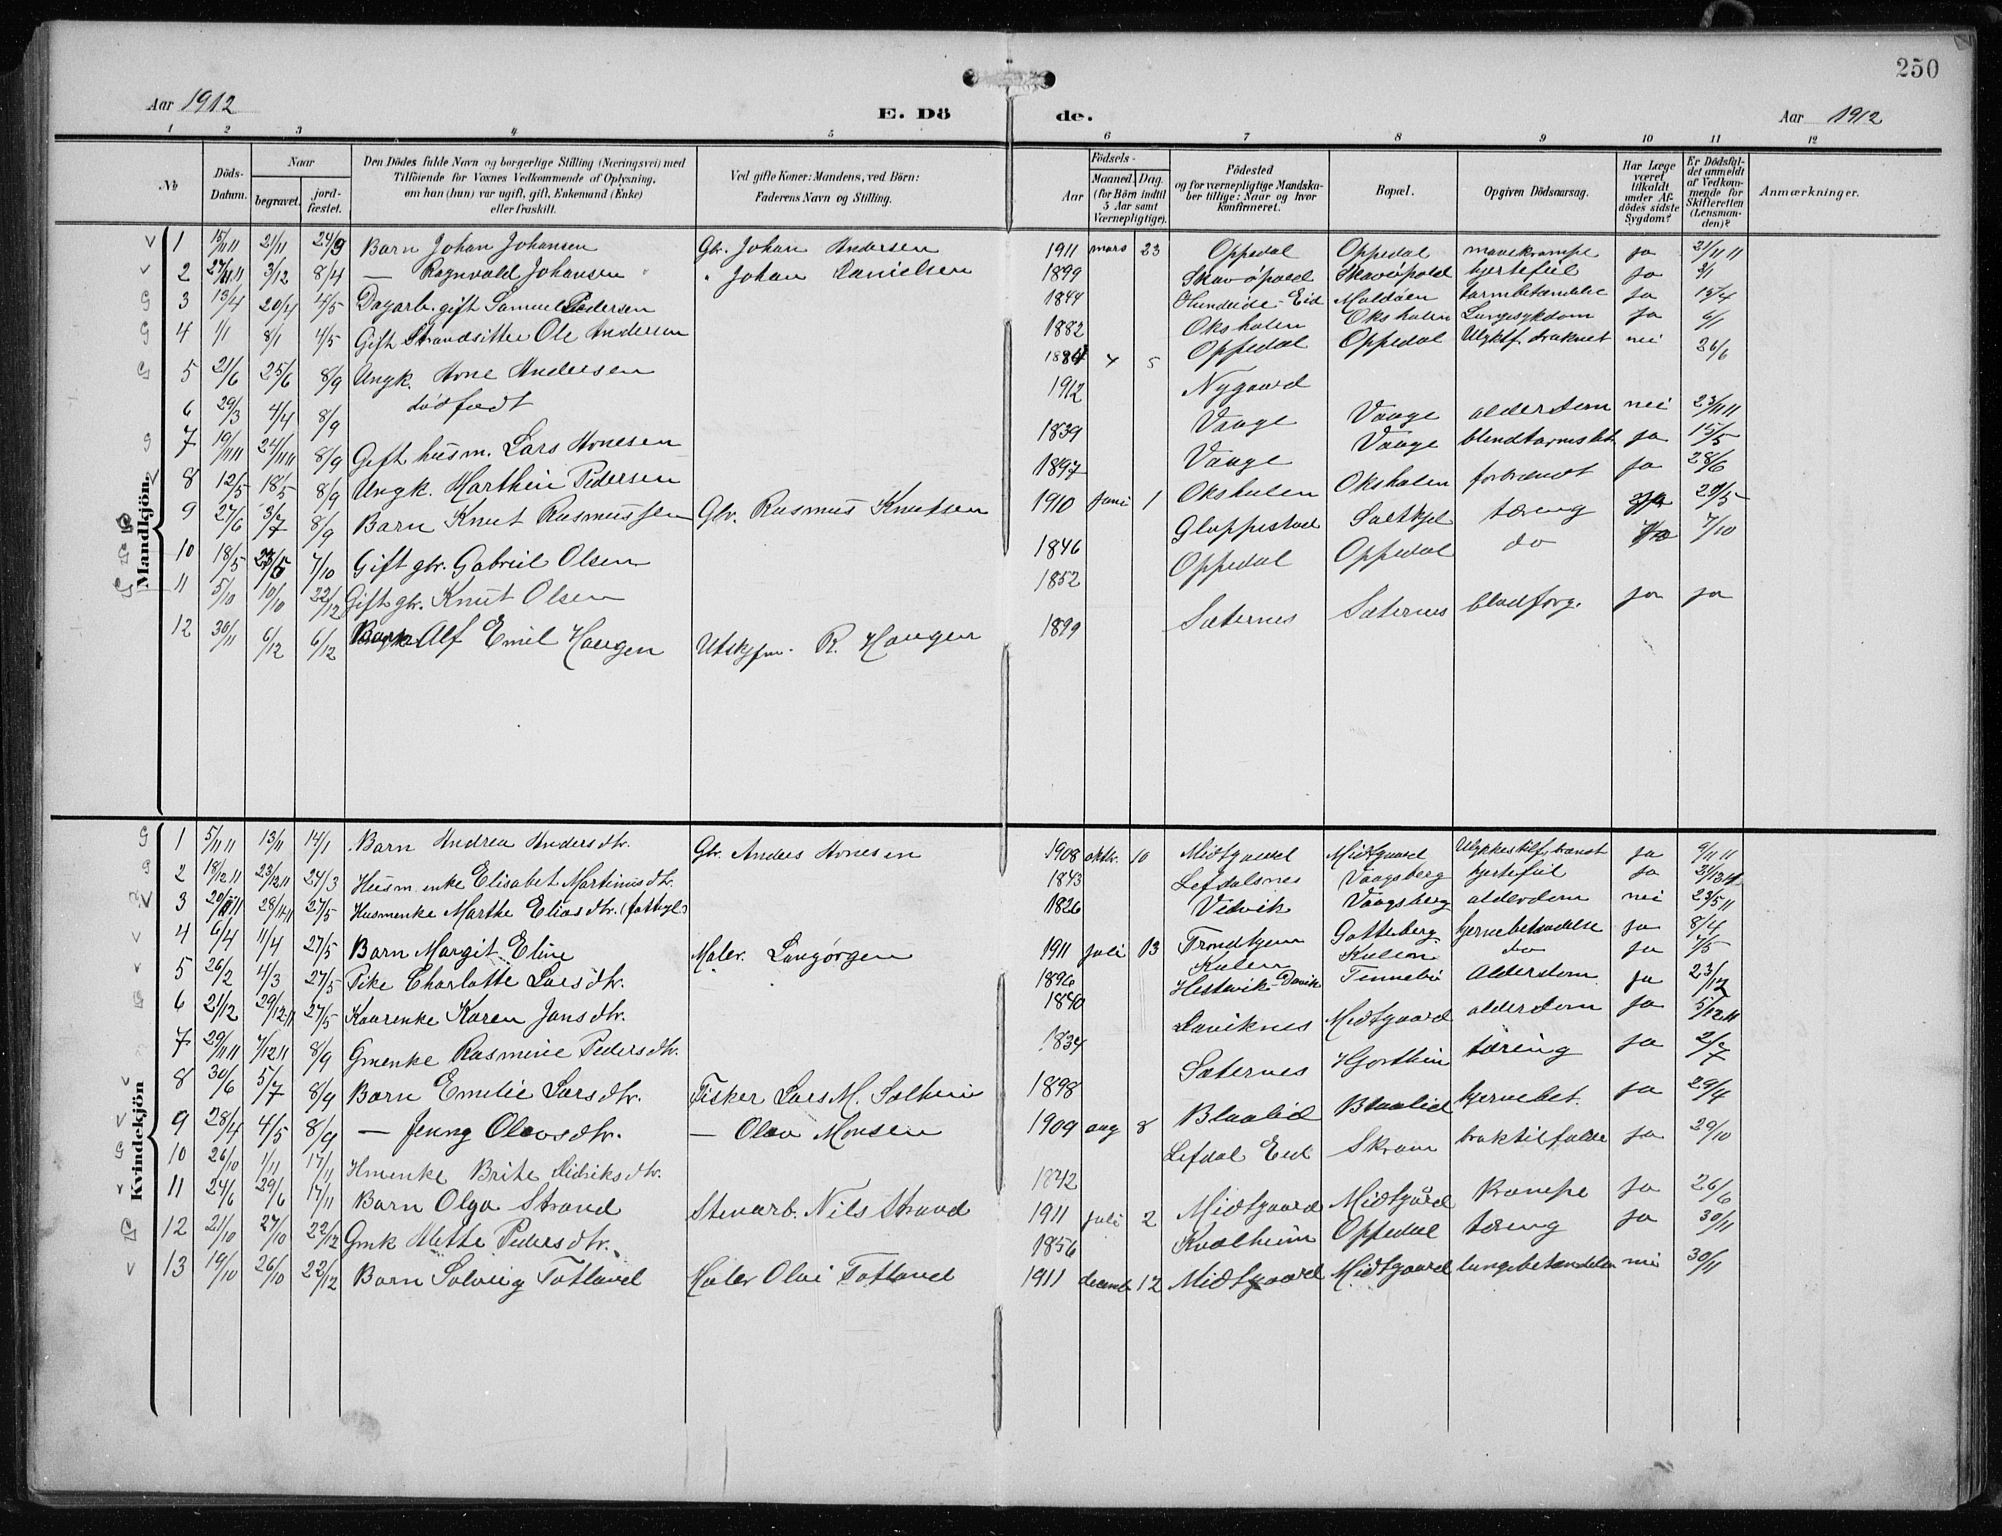 250
Aar 1912
E. Dö de.
Aar 1912
1 2 3 4 5 6 7 8 9 10 11 12
No
Döds-Datum.
Naar
begravet.
jord-fæstet.
Den Dödes fulde Navn og borgerlige Stilling (Næringsvei) med
Tilföiende for Voxnes Vedkommende af Oplysning,
om han (hun) var ugift, gift, Enkemand (Enke)
eller fraskilt.
Ved gifte Koner: Mandens, ved Börn:
Faderens Navn og Stilling.
Födsels-
Aar
Maaned. Dag.
(for Börn indtil
5 Aar samt
Værnepligtige).
Födested
og for værnepligtige Mandska-
ber tillige: Naar og hvor
konfirmeret.
Bopæl.
Opgiven Dödsaarsag.
Har Læge
været
tilkaldt
under Af-
dödes sidste
Sygdom?
Er Dödsfal-
det anmeldt
af Vedkom-
mende for
Skifteretten
(Lensman-
den)?
Anmærkninger.
Mandkjön.
1 15/11 11 2/11 24/3 Barn Johan Johansen Gbr. Johan Andersen 1911 mars 23 Oppedal Oppedal mavekrampe ja 21/11 11
2 27/11 11 3/12 8/4 — Ragnvald Johansen " Johan Danielsen 1899 Skavøpold Skavøpold hjertefeil ja 2/1
3 13/4 20/4 4/5 Dagarb. gift Samuel Pedersen 1844 Hundeide - Eid Maldøen tarmbetændelse ja 15/4
4 1/1 8/1 4/5 Gift Strandsitter Ole Andersen 1882 Oksholen Oksholen Lungesykdom ja 6/1
5 21/6 25/6 8/9 Ungk. Arne Andersen 4 5 Oppedal Oppedal Ulykkf. druknet nei 26/6
6 29/3 4/4 8/9 dødfødt 1912 Nygaard
7 19/11 11 24/11 11 8/9 Gift husm. Lars Arnesen 1839 Vaage Vaage alderdom nei 23/11 11
8 12/5 18/5 8/9 Ungk. Marthin Pedersen 1897 Vaage Vaage blindtarmsbet ja 15/5
9 27/6 3/7 8/9 Barn Knut Rasmussen Gbr. Rasmus Knutsen 1910 juni 1 Oksholen Oksholen forbrændt ja 28/6
10 18/5 23/5 7/10 Gift gbr. Gabriel Olsen 1846 Gloppestad Saltkjel tæring ja 20/5
11 5/10 10/10 22/12 Gift gbr. Knut Olsen 1852 Oppedal Oppedal do 7/10
12 30/11 6/12 6/12 Alf Emil Haugen Utskfm. R. Haugen 1899 Sæternes Sæternes blodforg. ja ja
Kvindekjön
1 5/11 11 13/11 14/1 Barn Andrea Andersdtr. Gbr. Anders Arnesen 1908 oktr. 10 Midtgaard Midtgaard Ulykkestilf. brændt ja 9/11 11
2 18/12 11 23/12 11 24/3 Husm. enke Elisabet Martinusdtr. 1843 Lefdalsnes Vaagsberg hjertefeil ja
3 28/11 11 27/5 Husmenke Marthe Eliasdtr. 1826 Vedvik Vaagsberg alderdom nei
4 6/4 11/4 27/5 Barn Margit Eline Maler. Langørgen 1911 juli 13 Trondhjem Gotteberg hjernebetændelse ja 8/4
5 26/2 4/3 27/5 Pike Charlotte Larsdtr. 1896 Kulen Kulen do ja 7/5
6 21/12 29/12 11 27/5 Kaarenke Karen Jansdtr. 1840 Hestevik Davik Tennebø Alderdom ja 23/12
7 29/11 11 7/12 11 8/9 Gmenke Rasmine Pedersdtr. 1834 Daviknes Midtgaard alderdom ja 5/12 11
8 30/6 5/7 8/9 Barn Emilie Larsdtr. Fisker Lars M. Solheim 1898 Sæternes Hjorthin tæring ja 2/7
9 28/4 4/5 8/9 — Jenny Olavsdtr. — Olav Monsen 1909 aug 8 Blaalid Blaalid hjernebet. ja 29/4
10 26/10 1/11 17/11 Hmenke Brite Didriksdtr. 1842 Lefdal Eid Skram ja 29/10
11 24/6 29/6 17/11 Barn Olga Strand Stenarb. Nils Strand 1911 juli 2 Midtgaard Midtgård Krampe ja 26/6
12 21/10 27/10 22/12 Gmk Mette Pedersdtr. 1856 Kvalheim Oppedal tæring ja 30/11
13 19/10 26/10 22/12 Barn Solveig Totland Maler Olai Totland 1911 decemb. 12 Midtgaard Midtgaard lungebetændelse nei 30/11